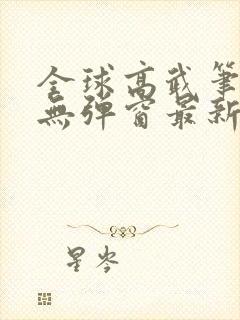 全球高武筆
無彈窗最新
星岑